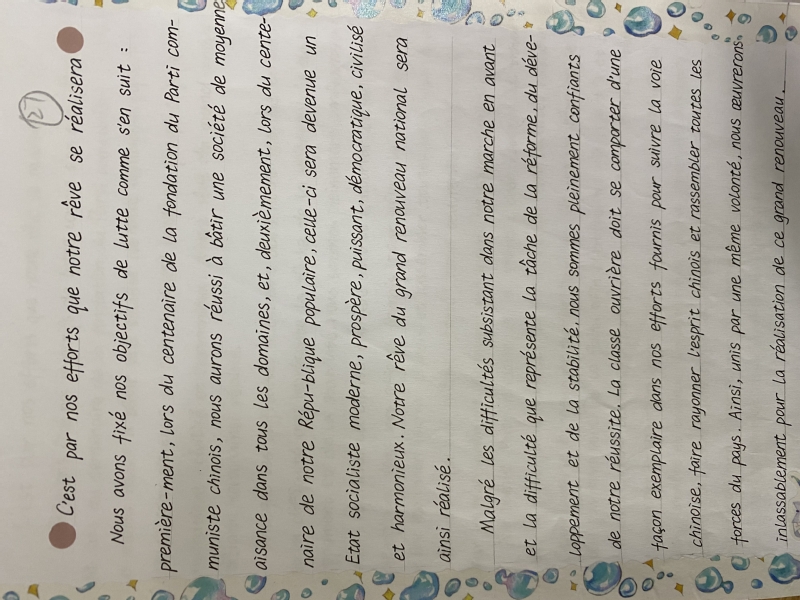 C'est par nos efforts que notre rêve se réalisera
Nous avons fixé nos objectifs de lutte comme s'en suit :
première-ment, lors du centenaire de la fondation du Parti com-
muniste chinois, nous aurons réussi à bâtir une société de moyenne
aisance dans tous les domaines, et, deuxièmement, lors du cente-
naire de notre Répu-blique populaire, celle-ci sera devenue un
Etat socialiste moderne, prospère, puissant, démocratique, civilisé
et harmonieux. Notre rêve du grand renouveau national sera
ainsi réalisé.
Malgré les difficultés subsistant dans notre marche en avant
et la difficulté que représente la tâche de la réforme, du déve-
loppement et de la stabilité, nous sommes pleinement confiants
de notre réussite. La classe ouvrière doit se comporter d'une
façon exemplaire dans nos efforts fournis pour suivre la voie
chinoise, faire rayonner l'esprit chinois et rassembler toutes les
forces du pays. Ainsi, unis par une même volonté, nous œuvrerons
inlassablement pour la réalisation de ce grand renouveau.